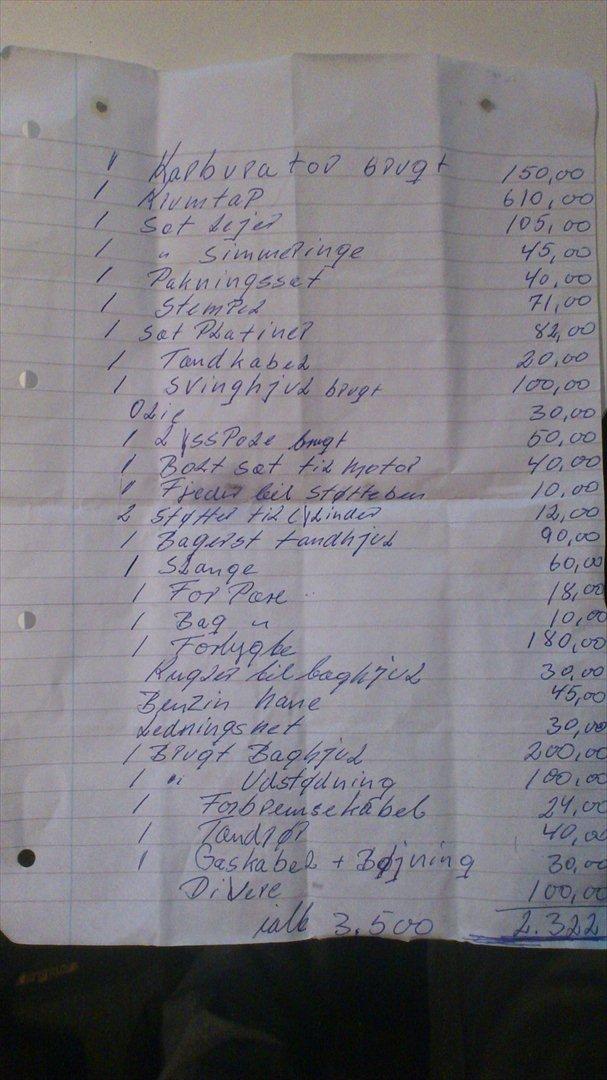 " Karburator brugt 150,00
1 Krumtap 610,00
1 Sæt Lejer 105,00
1 " Simmeringe 45,00
1 Pakningssæt 40,00
1 Stempel 71,00
1 sæt Platiner 82,00
1 Tændkabel 20,00
1 Svinghjul brugt 100,00
Olie 30,00
1 Lyspole brugt 50,00
1 Bolt sæt til motor 40,00
" Fjeder til støtteben 10,00
2 støtter til cylinder 12,00
1 Bagerst tandhjul 90,00
1 Slange 60,00
1 For Pære 18,00
1 Bag " 10,00
1 Forlygte 180,00
Kugler til baghjul 30,00
Benzin hane 45,00
Ledningsnet 30,00
1 Brugt Baghjul 200,00
1 " Udstødning 100,00
1 Forbremsekabel 24,00
1 Tændrør 40,00
1 Gaskabel + Bøjning 30,00
Divere 100,00
ialt 3.500 2.322